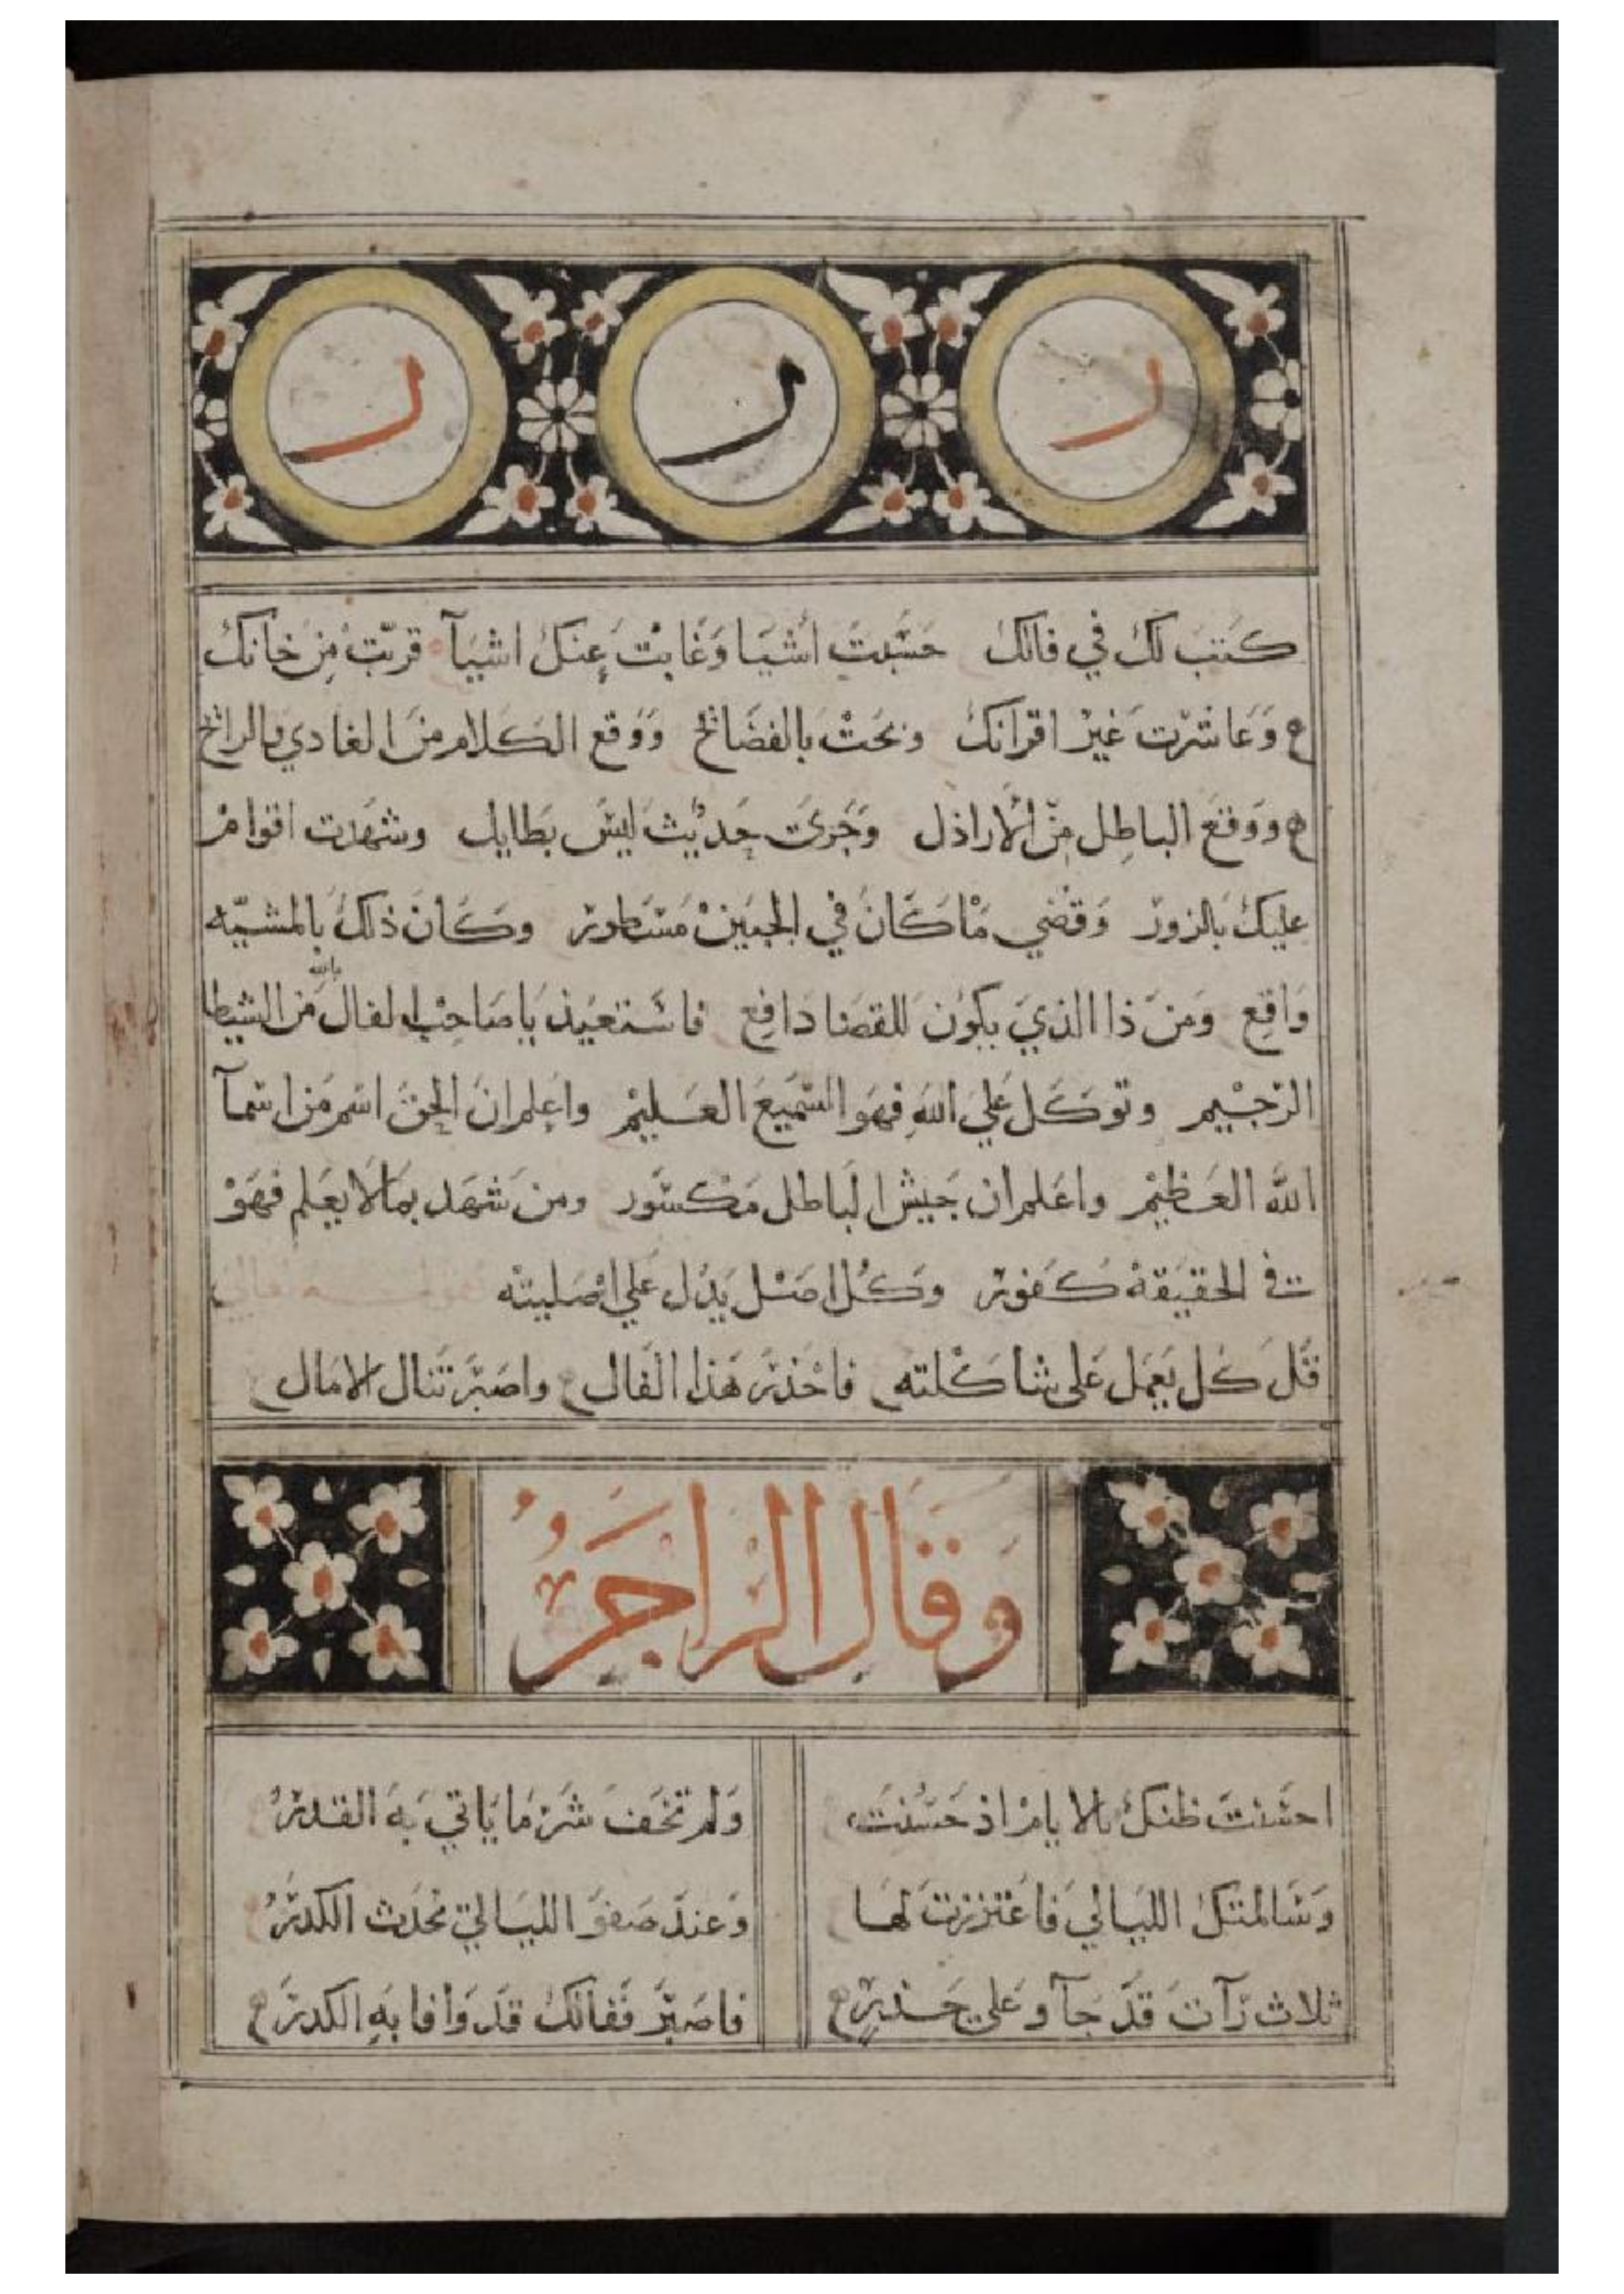 ر ر ر
كتب لك في فالك حسبت أشيا وغابت عنك اشيآ قربت من خانك
وعاشرت غير اقرانك وبحت بالفضائح ووقع الكلام من الغادي والرائح
ووقع الباطل من الاراذل وجرى حديث ليس بطايل وشهدت اقوام
عليك بالزور وقضي ما كان في الجبين مسطور وكان ذلك بالمشيّه
واقع ومن ذا الذي يكون للقضا دافع فاستعيذ يا صاحب الفال بالله من الشيطا
الرجيم وتوكل علي الله فهو السميع العليم واعلم ان الحق اسم من اسمآ
الله العظيم واعلم ان جيش الباطل مكسور ومن شهد بما لا يعلم فهو
في الحقيقة كفور وكل اصل يدل علي اصليته
قل كل يعمل على شاكلته فاحذر هذا الفال واصبر تنال الامال
وقال الراجز
احسنت ظنك بالايام اذ حسنت ولم تخف شر ما ياتي به القدر
وسالمتك الليالي فاغتررت لها وعند صفو الليالي تحدث الكدر
ثلاث رآت قد جآوا على حذر فاصبر ففالك قد وافا به الكدر